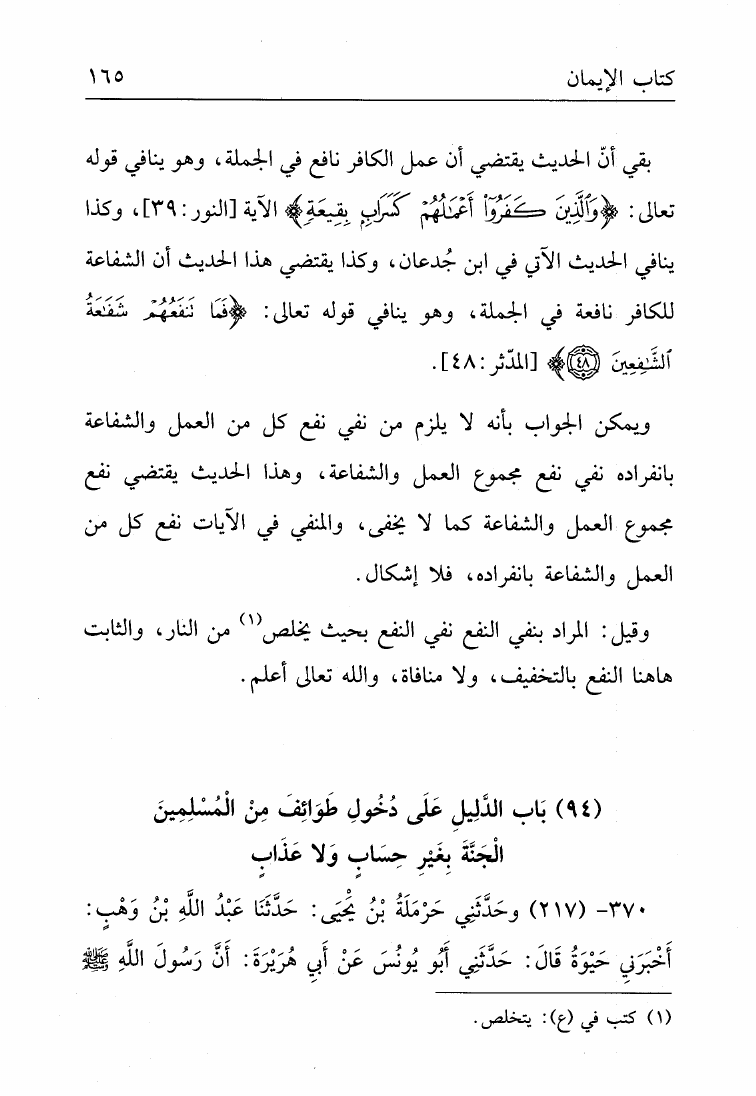 كتاب الإيمان ١٦٥
بقي أنّ الحديث يقتضي أن عمل الكافر نافع في الجملة، وهو ينافي قوله
تعالى: ﴿وَٱلَّذِينَ كَفَرُوٓا۟ أَعْمَـٰلُهُمْ كَسَرَابٍۭ بِقِيعَةٍ﴾ الآية [النور:٣٩]، وكذا
ينافي الحديث الآتي في ابن جُدعان، وكذا يقتضي هذا الحديث أن الشفاعة
للكافر نافعة في الجملة، وهو ينافي قوله تعالى: ﴿فَمَا تَنفَعُهُمْ شَفَـٰعَةُ
ٱلشَّـٰفِعِينَ ٤٨﴾ [المدّثر:٤٨].
ويمكن الجواب بأنه لا يلزم من نفي نفع كل من العمل والشفاعة
بانفراده نفي نفع مجموع العمل والشفاعة، وهذا الحديث يقتضي نفع
مجموع العمل والشفاعة كما لا يخفى، والمنفي في الآيات نفع كل من
العمل والشفاعة بانفراده، فلا إشكال.
وقيل: المراد بنفي النفع نفي النفع بحيث يخلص(١) من النار، والثابت
هاهنا النفع بالتخفيف، ولا منافاة، والله تعالى أعلم.
(٩٤) بَاب الدَّلِيلِ عَلَى دُخُولِ طَوَائِفَ مِنْ الْمُسْلِمِينَ
الْجَنَّةَ بِغَيْرِ حِسَابٍ وَلَا عَذَابٍ
٣٧٠- (٢١٧) وحَدَّثَنِي حَرْمَلَةُ بْنُ يَحْيَى: حَدَّثَنَا عَبْدُ اللَّهِ بْنُ وَهْبٍ:
أَخْبَرَنِي حَيْوَةُ قَالَ: حَدَّثَنِي أَبُو يُونُسَ عَنْ أَبِي هُرَيْرَةَ: أَنَّ رَسُولَ اللَّهِ ﷺ
(١) كتب في (ع): يتخلص.